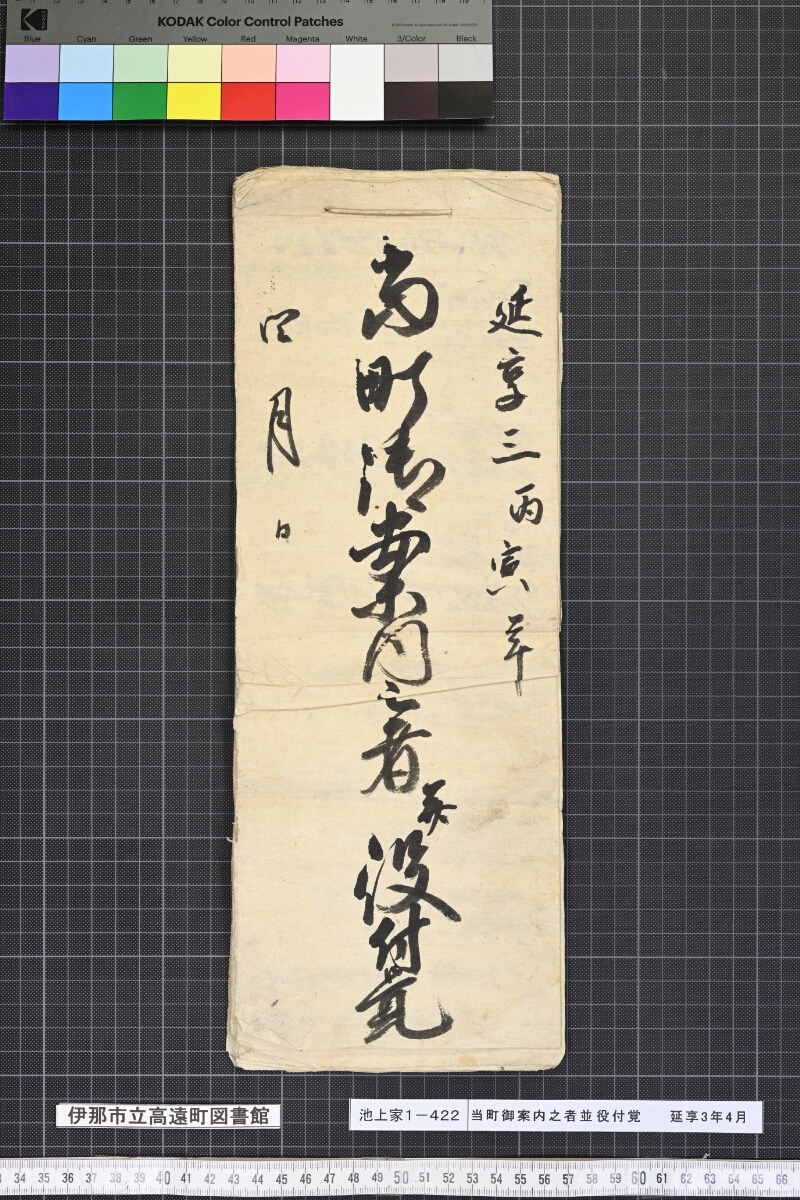 KODAK Color Control Patches
Blue Cyan Green Yellow Red Magenta White 3/Color Black
延享三丙寅年
当町御案内之者並役付覚
四月日
伊那市立高遠町図書館
池上家1－422 当町御案内之者並役付覚 延享3年4月
34 35 36 37 38 39 40 41 42 43 44 45 46 47 48 49 50 51 52 53 54 55 56 57 58 59 60 61 62 63 64 65 66